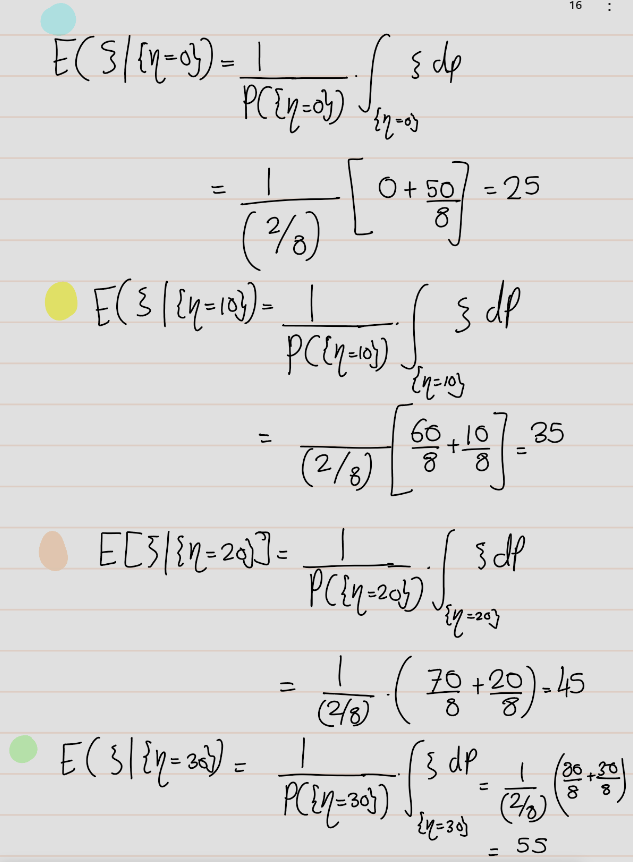 16 :
E(ξ|{η=0}) = 1/P({η=0}) · ∫_{η=0} ξ dP
= 1/(2/8) [0 + 50/8] = 25
E(ξ|{η=10}) = 1/P({η=10}) · ∫_{η=10} ξ dP
= /(2/8) [60/8 + 10/8] = 35
E[ξ|{η=20}] = 1/P({η=20}) · ∫_{η=20} ξ dP
= 1/(2/8) · (70/8 + 20/8) = 45
E(ξ|{η=30}) = 1/P({η=30}) · ∫_{η=30} ξ dP = 1/(2/8) (80/8 + 30/8)
= 55